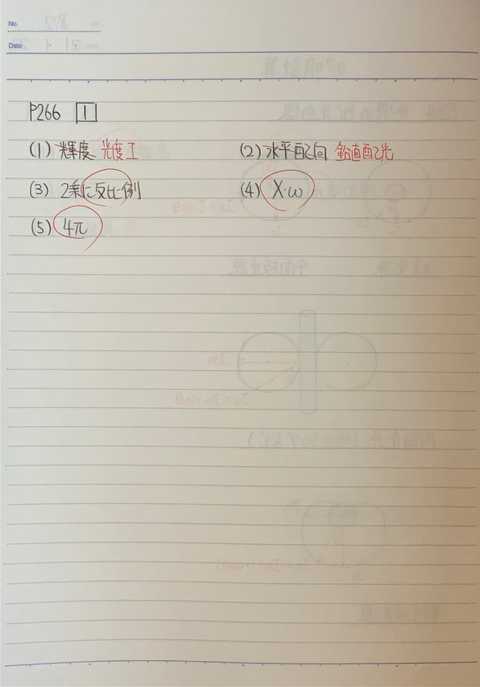 No.
Date
P266 1
(1) 輝度 光度I (2) 水平配向 鉛直配光
(3) 2乗に反比例 (4) X・ω
(5) 4π